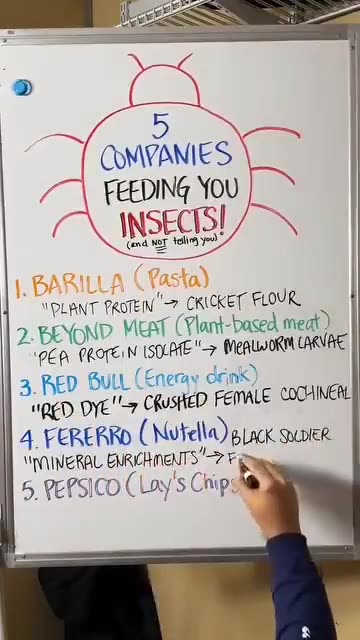 5
COMPANIES
FEEDING YOU
INSECTS!
(and NOT telling you)
1. BARILLA (Pasta)
"PLANT PROTEIN" → CRICKET FLOUR
2. BEYOND MEAT (Plant-based meat)
"PEA PROTEIN ISOLATE" → MEALWORM LARVAE
3. RED BULL (Energy drink)
"RED DYE" → CRUSHED FEMALE COCHINEAL
4. FERERRO (Nutella) BLACK SOLDIER
"MINERAL ENRICHMENTS" → F
5. PEPSICO (Lay's Chips